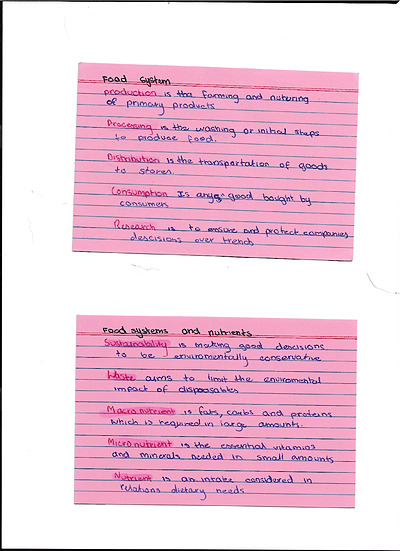 Food System
production is the farming and nuturing
of primary products
Processing is the washing or initial steps
to produce food.
Distribution is the transportation of goods
to stores.
Consumption Is any good bought by
consumers
Research is to ensure and protect companies
descisions over trends
Food systems and nutrients
Sustainability is making good descisions
to be enviromentally conservative
Waste aims to limit the enviromental
impact of disposables
Macro nutrient is fats, carbs and proteins
which is required in large amounts.
Micro nutrient is the essential vitamins
and minerals needed in small amounts
Nutrient is an intake considered in
relations dietary needs